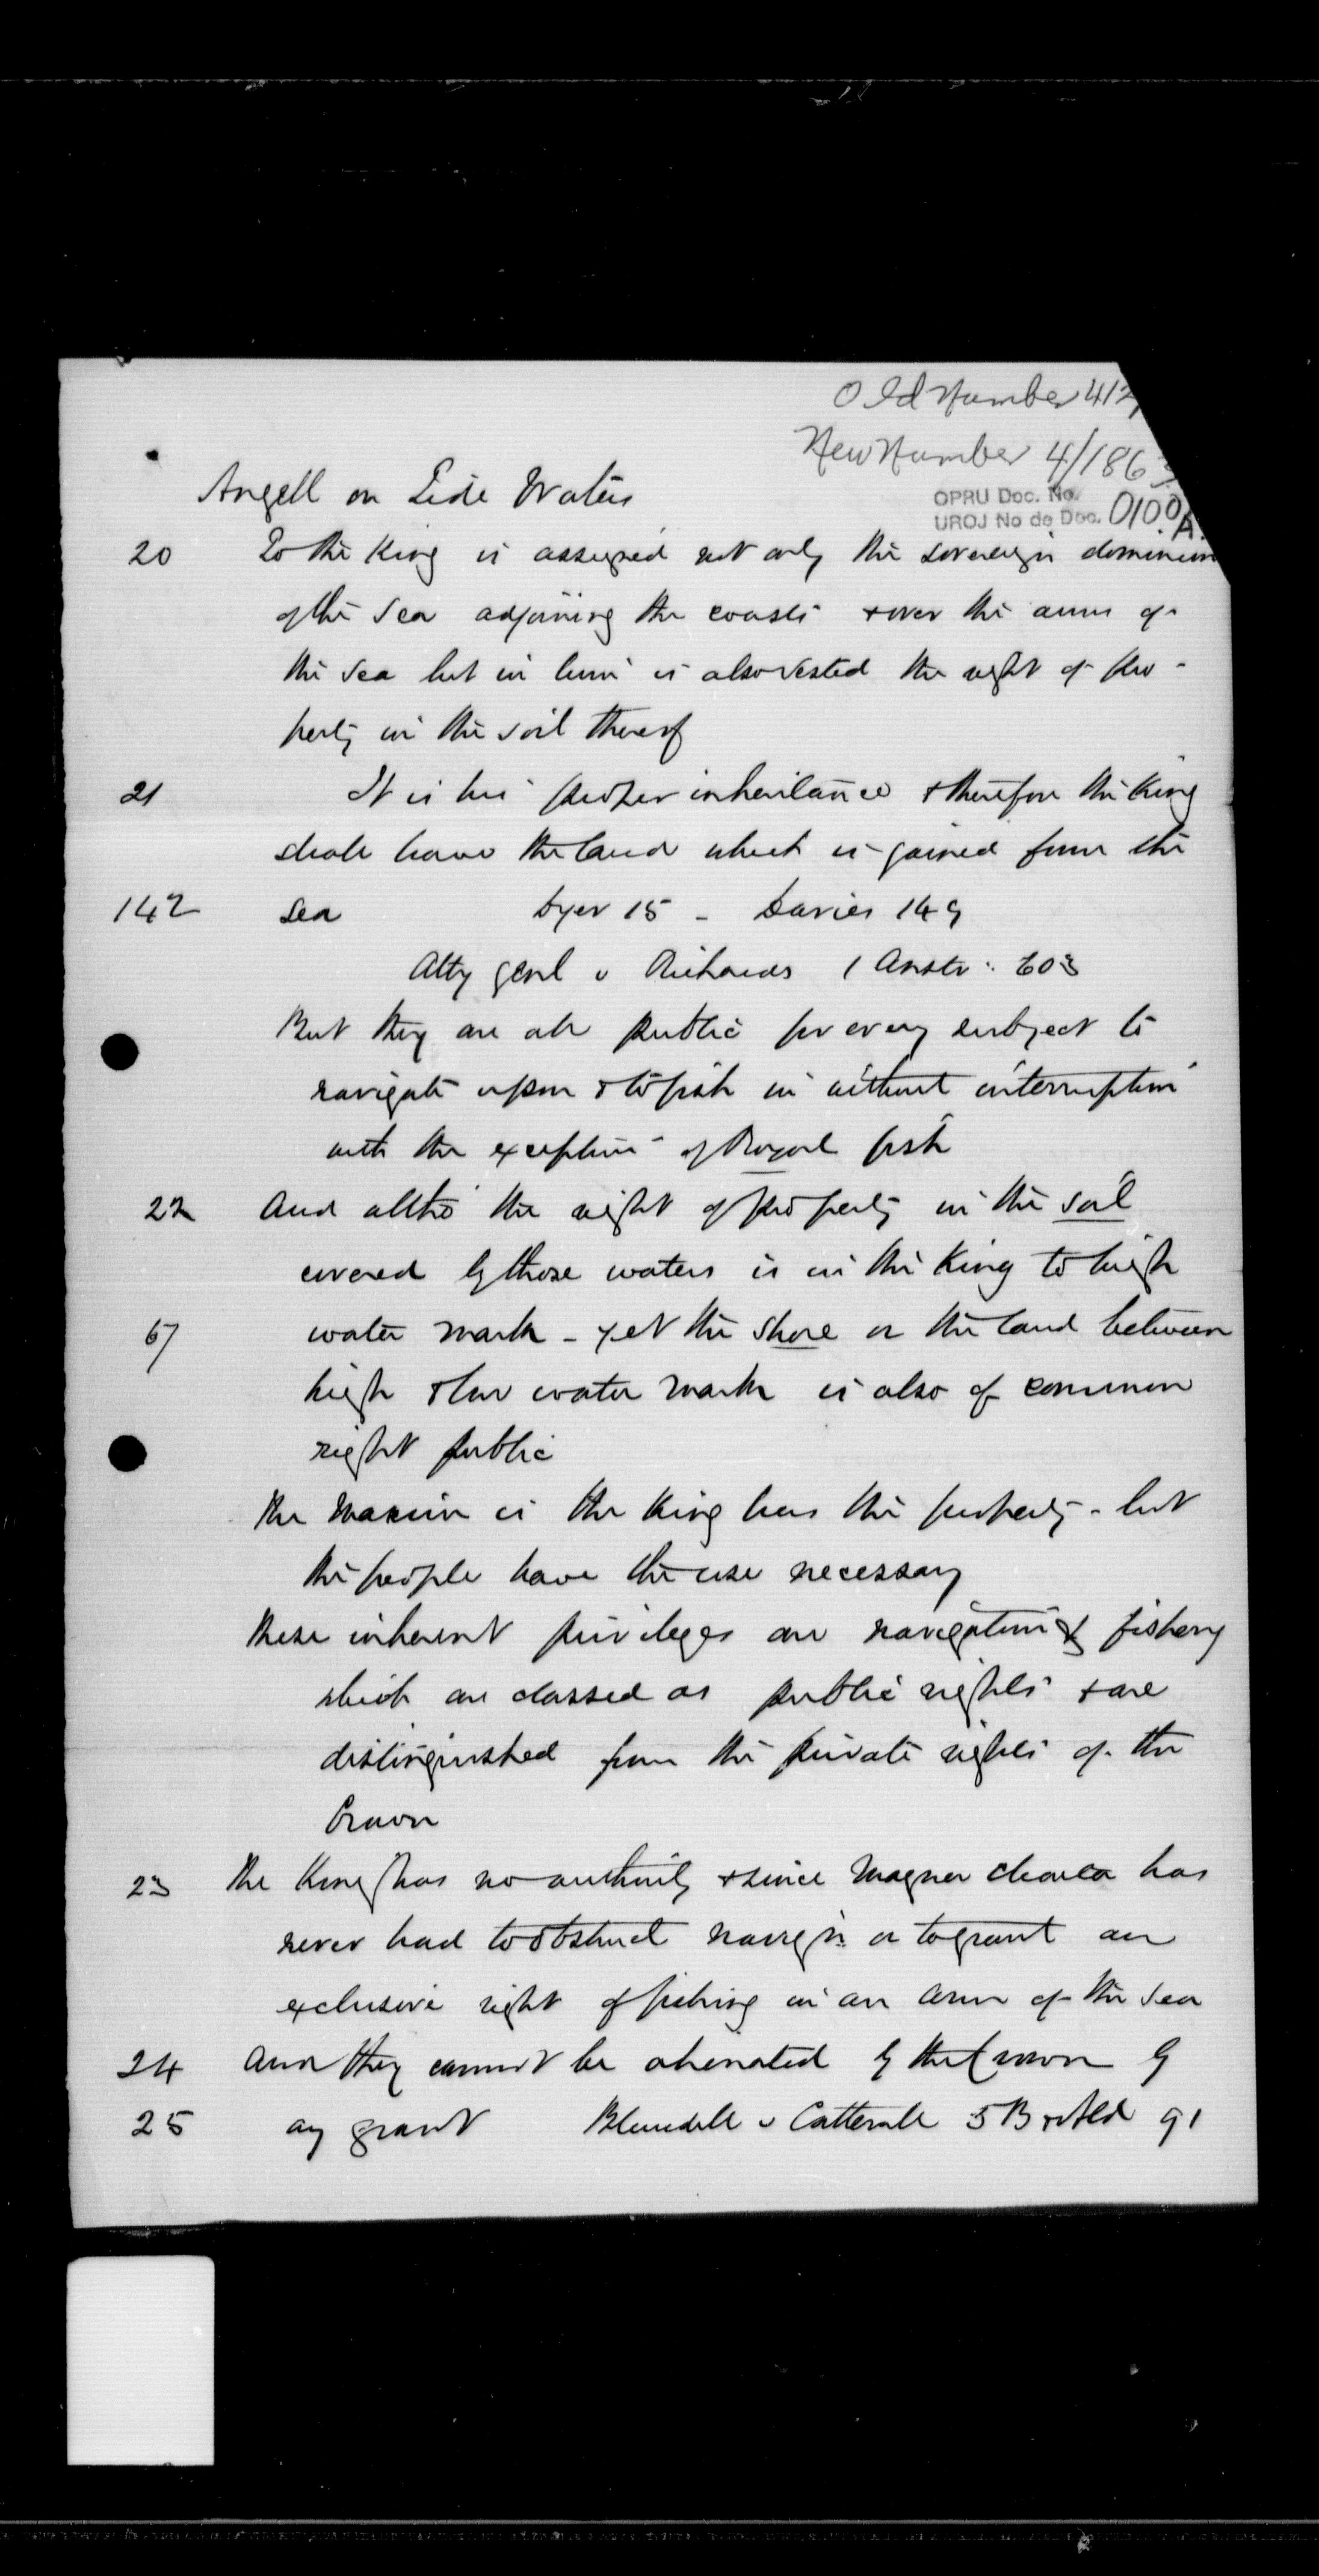 Old Number 412
New Number 4/1863
OPRU Doc. No.
UROJ No de Doc. 0100A.
Angell on Tide Waters
20 To the King is assigned not only the sovereign dominion
of the Sea adjoining the coasts & over the arms of
the Sea but in him is also vested the right of pro-
perty in the soil thereof
21 It is his proper inheritance & therefore the King
shall have the land which is gained from the
142 Sea Dyer 15 - Davies 149
Atty Genl v Richards 1 Anstr: 603
But they are all public for every subject to
navigate upon & to fish in without interruption
with the exception of Royal fish
22 And altho' the right of property in the soil
covered by those waters is in the King to high
67 water mark - yet the shore or the land between
high & low water mark is also of common
right public
The Maxim is the King has the property - but
the people have the use necessary
These inherent privileges are navigation & fishery
which are classed as public rights & are
distinguished from the private rights of the
Crown
23 The King has no authority & since Magna Charta has
never had to obstruct navign. or to grant an
exclusive right of fishing in an arm of the Sea
24 And they cannot be alienated by the Crown by
25 any grant Blundell v Catterall 5 B & Ald 91